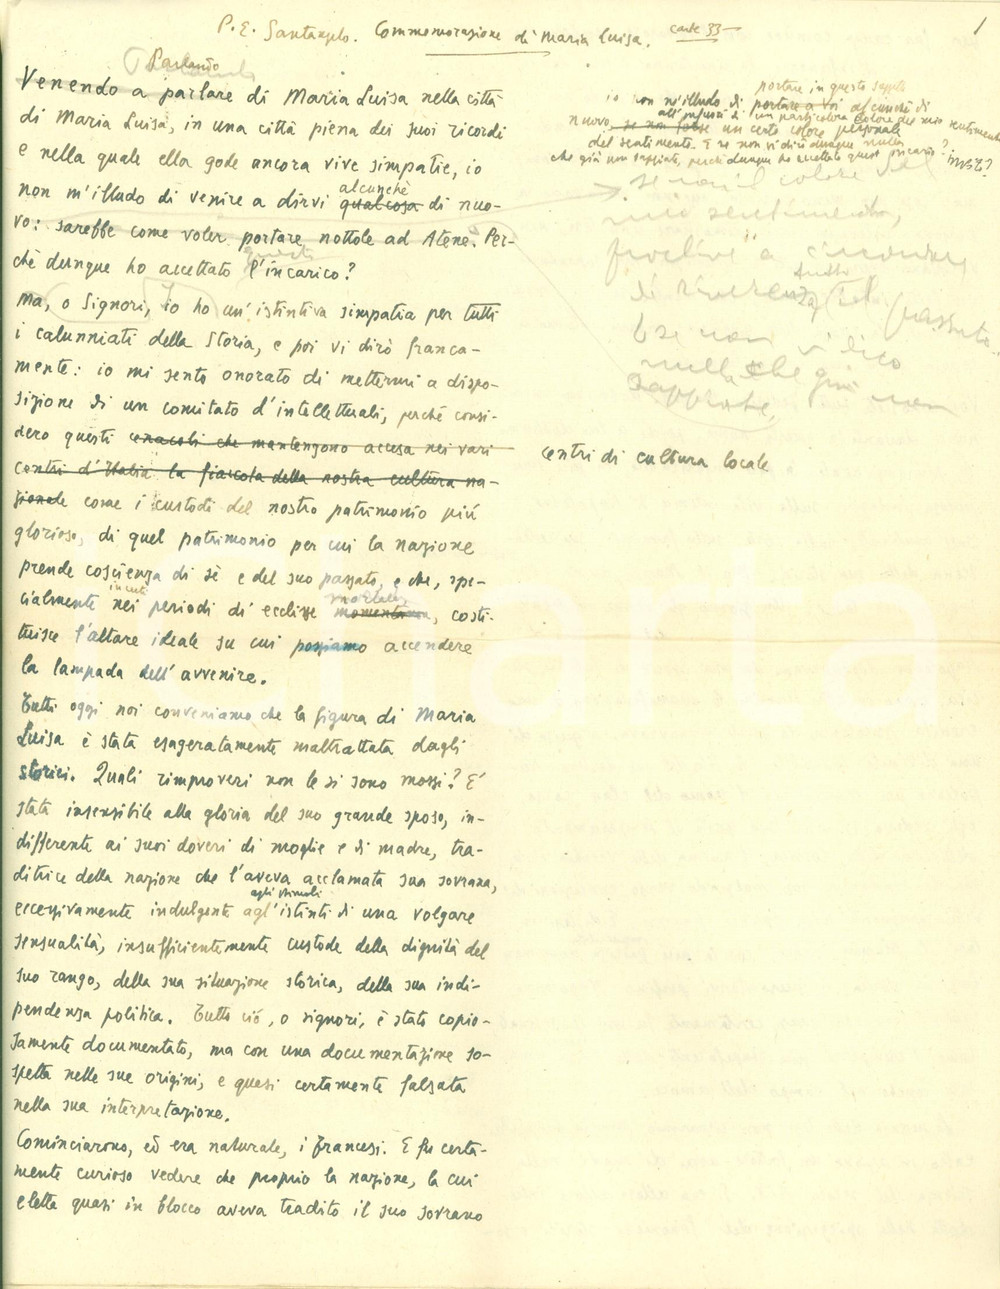 P. E. Santangelo. Commemorazione di Maria Luisa. carte 33
1
Parlando
Venendo a parlare di Maria Luisa nella città
di Maria Luisa, in una città piena dei suoi ricordi
e nella quale ella gode ancora vive simpatie, io
non m'illudo di venire a dirvi qualcosa alcunchè di nuo-
vo: sarebbe come voler portare nottole ad Atene. Per-
chè dunque ho accettato questo l'incarico?
Ma, o Signori, io ho un'istintiva simpatia per tutti
i calunniati della Storia, e poi vi dirò franca-
mente: io mi sento onorato di mettermi a dispo-
sizione di un comitato d'intellettuali, perchè consi-
dero questi cenacoli che mantengono accesa nei vari
centri d'Italia la fiaccola della nostra cultura na-
zionale come i custodi del nostro patrimonio più
glorioso, di quel patrimonio per cui la nazione
prende coscienza di sè e del suo passato, e che, spe-
cialmente nei periodi di ecclisse momentanea, costi-
tuisce l'altare ideale su cui possiamo accendere
la lampada dell'avvenire.
Tutti oggi noi conveniamo che la figura di Maria
Luisa è stata esageratamente maltrattata dagli
storici. Quali rimproveri non le si sono mossi? E'
stata insensibile alla gloria del suo grande sposo, in-
differente ai suoi doveri di moglie e di madre, tra-
ditrice della nazione che l'aveva acclamata sua sovrana,
agli stimoli
eccessivamente indulgente agl'istinti di una volgare
sensualità, insufficientemente custode della dignità del
suo rango, della sua situazione storica, della sua indi-
pendenza politica. Tutto ciò, o signori, è stato copio-
samente documentato, ma con una documentazione so-
spetta nelle sue origini, e quasi certamente falsata
nella sua interpretazione.
Cominciarono, ed era naturale, i francesi. E fu certa-
mente curioso vedere che proprio la nazione, la cui
eletta quasi in blocco aveva tradito il suo sovrano
portare in questo
io non m'illudo di portare a voi alcunchè di
all'infuori di un particolare colore del mio sentimento
nuovo, se non forse un certo colore personale
del sentimento. E se non vi dirò dunque nulla
che già non sappiate, perchè dunque ho accettato quest'incarico?
se non il colore del
mio sentimento,
di tutto il passato.
E se non vi dico
nulla che già non
sappiate,
centri di cultura locale